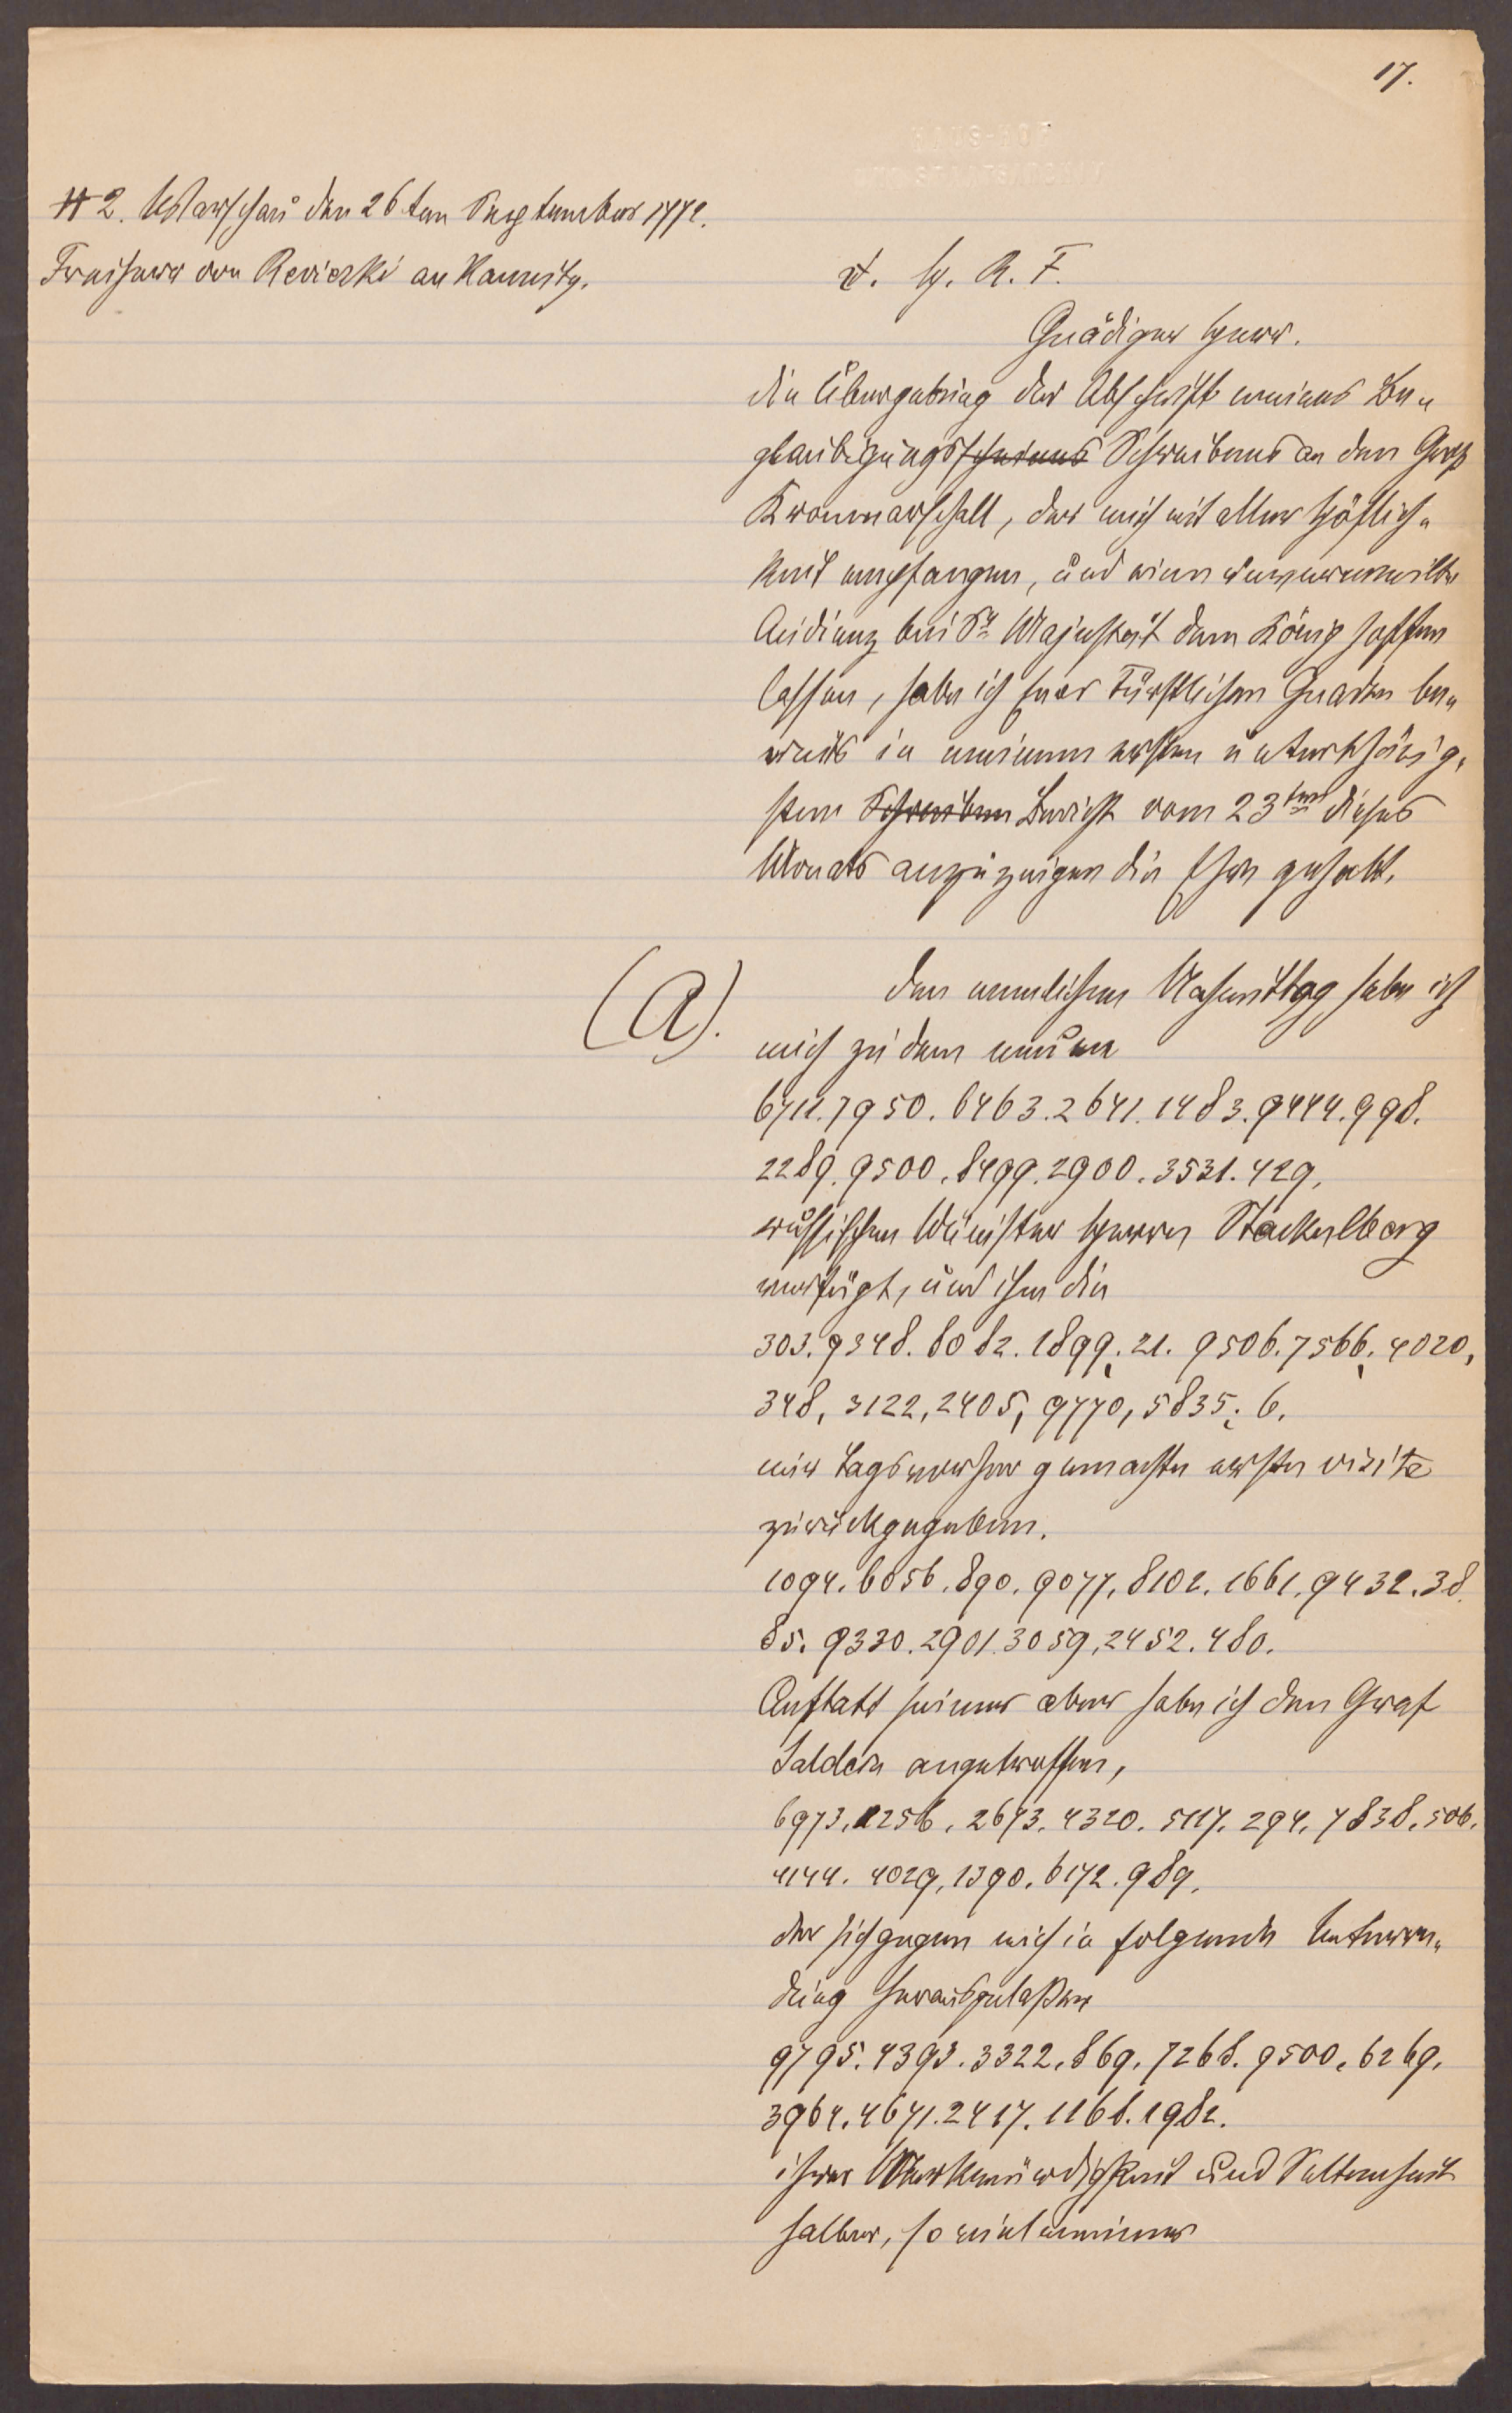 17.
# 2. Warschau den 26ten September 1772.
Freiherr von Revizki an Kaunitz.
d. H. R. F.
Gnädiger Herr.
die Übergebung der Abschrift meines Be-
glaubigungsscheines Schreibens an den Groß
Kronmarschall, der mich mit aller Höflich-
keit empfangen, und eine
Audienz bei Sr Majestät dem König hoffen
lassen, habe ich Euer Fürstlichen Gnaden be-
reits in meinem ersten unterthänig-
sten Schreiben Bericht vom 23ten dieses
Monats anzuzeigen die Ehre gehabt.
(A).
den nemlichen Nachmittag habe ich
mich zu dem neuen
6711. 7950. 6463. 2641. 1483. 9444. 998.
2289. 9500. 8499. 2900. 3531. 429,
russischen Minister Herrn Stackelberg
verfügt, und ihm die
303. 9348. 8082. 1899. 21. 9506. 7566. 4020,
348, 3122, 2405, 9770, 5835. 6.
mir Tags vorher gemachte erste visite
zurückgegeben.
1094. 6056. 890. 9077. 8102. 1661. 9432. 38.
85. 9330. 2901. 3059, 2452. 480.
Anstatt seiner aber habe ich den Graf
Saldern angetroffen,
6973. 1256. 2673. 4320. 5117. 294. 7838. 506.
4144. 4029, 1390. 6172. 989.
der sich gegen mich in folgende Unterre-
dung herausgelaßen
9795. 4393. 3322. 869. 7268. 9500. 6269.
3964. 4671. 2417. 1168. 1982.
ihrer Merkwürdigkeit und Seltenheit
halber, so viel meines